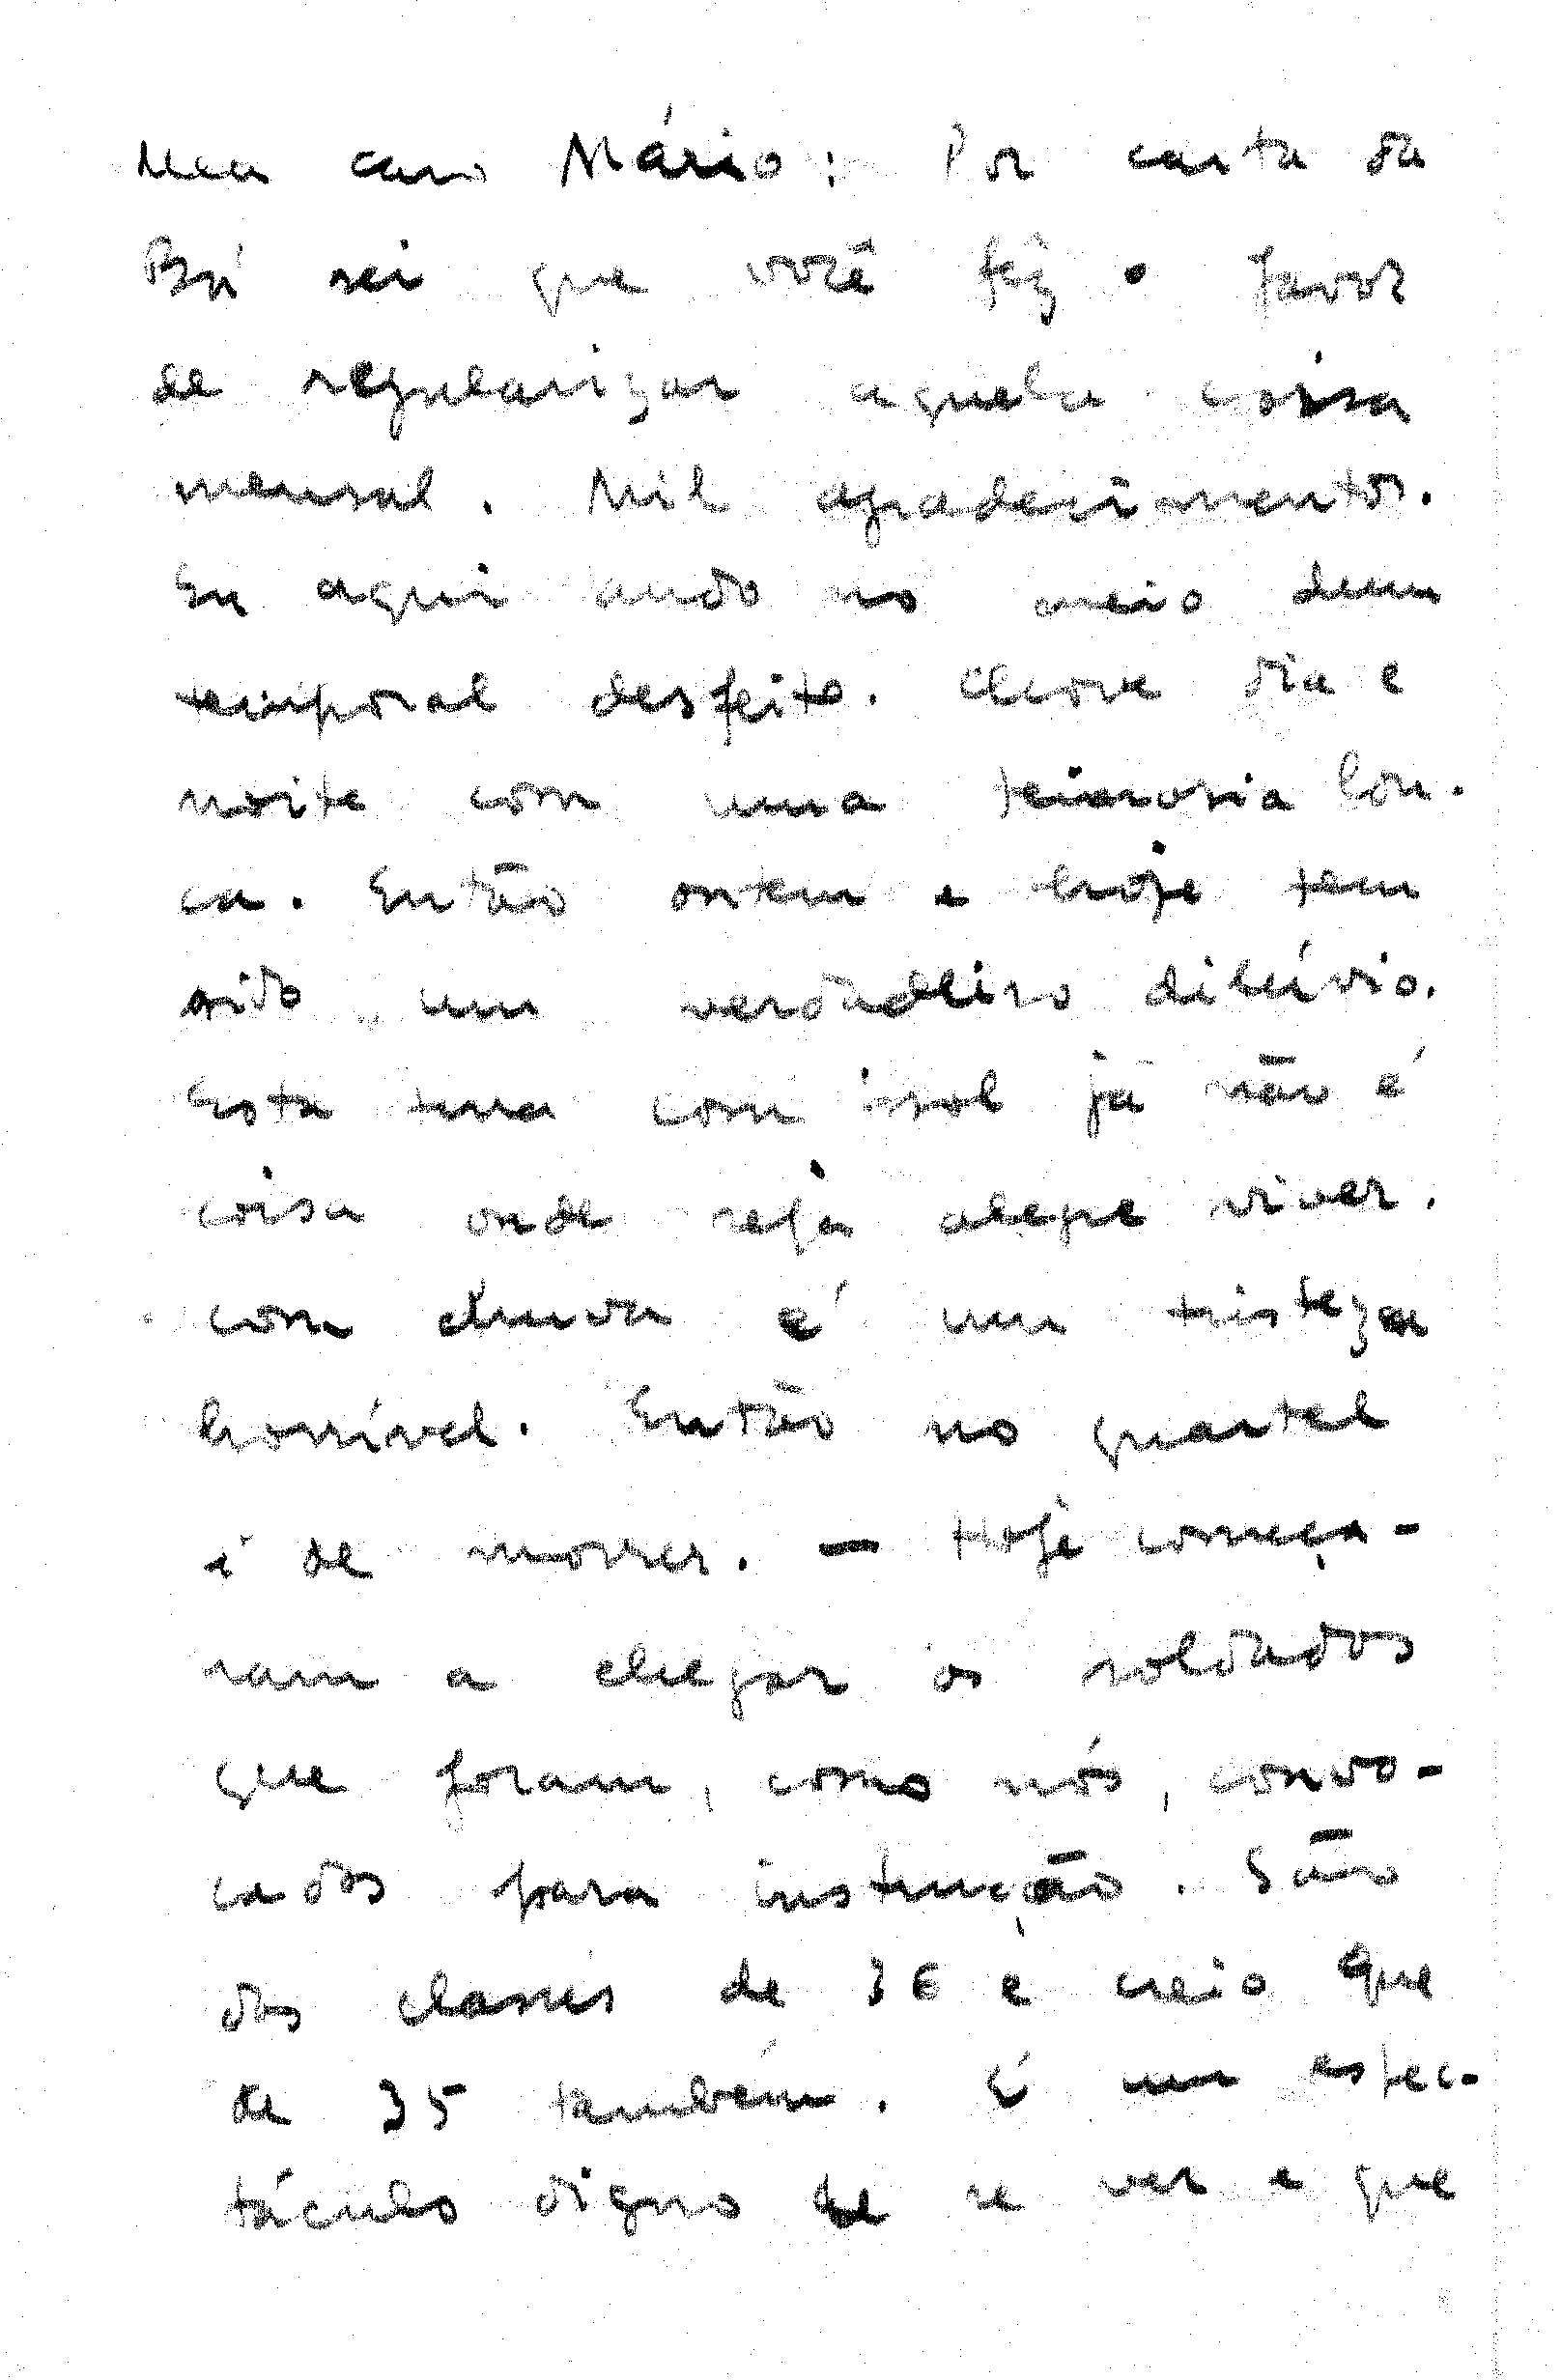 Meu caro Mário: Por carta da
Bú sei que você fêz o favor
de regularizar aquela coisa
mensal. Mil agradecimentos.
Eu aqui ando no meio dum
temporal desfeito. Chove dia e
noite com uma teimosia lou-
ca. Então ontem e hoje tem
sido um verdadeiro dilúvio.
Esta terra com sol já não é
coisa onde seja alegre viver.
com chuva é um tristeza
horrível. Então no quartel
é de morrer. — Hoje começa-
ram a chegar os soldados
que foram, como nós, convo-
cados para instrução. São
das classes de 36 e creio que
de 35 também. É um espec-
táculo digno de se ver e que